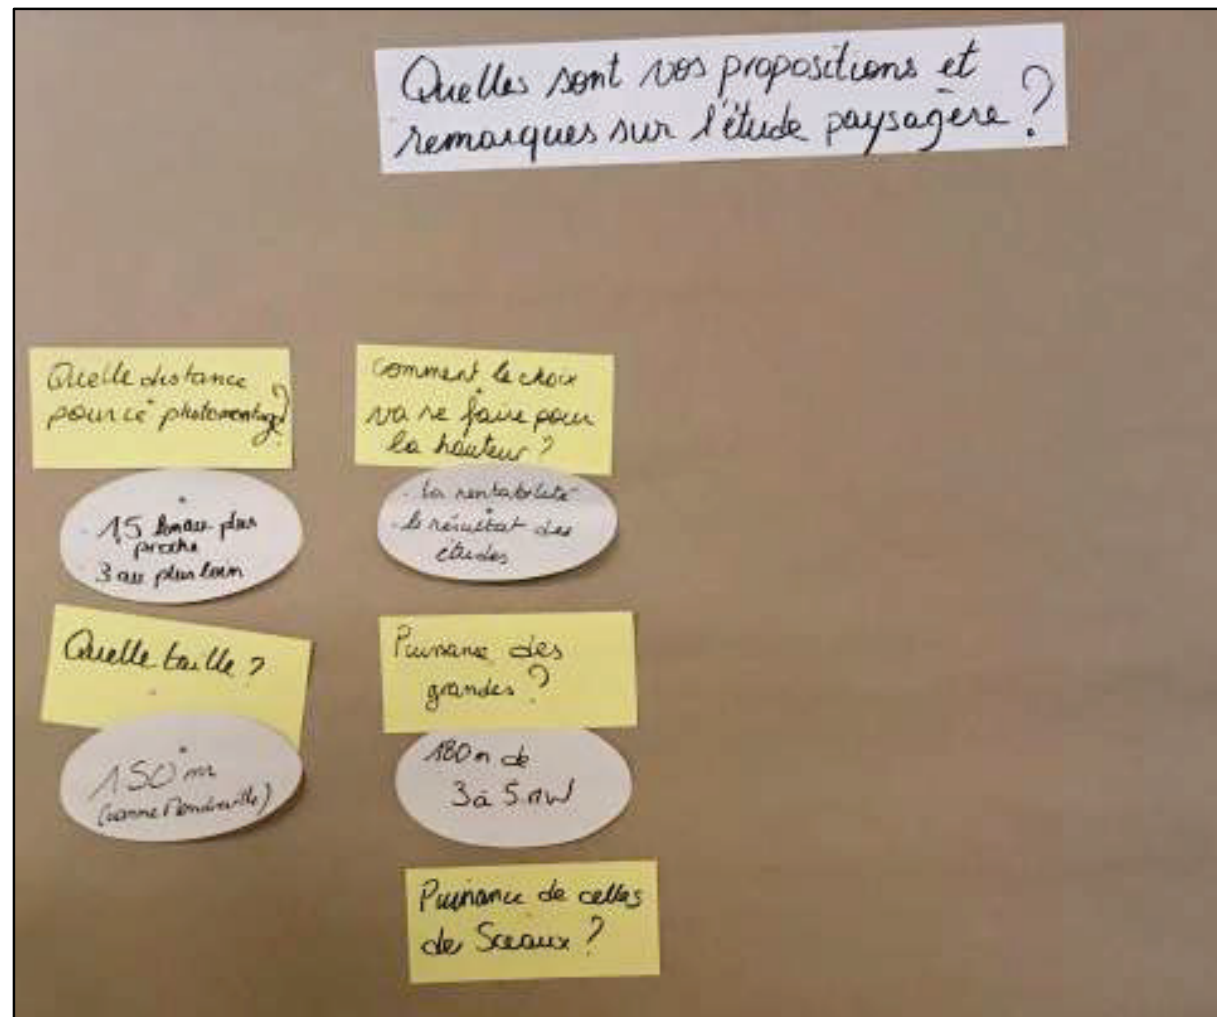 Quelles sont vos propositions et
remarques sur l'étude paysagère ?
Quelle distance
pour ce photomontage ?
- 1,5 km au plus
proche
- 3 au plus loin
Comment le choix
va se faire pour
la hauteur ?
- la rentabilité
- le résultat des
études
Quelle taille ?
150 m
(comme
Puissance des
grandes ?
180 m de
3 à 5 MW
Puissance de celles
de Sceaux ?